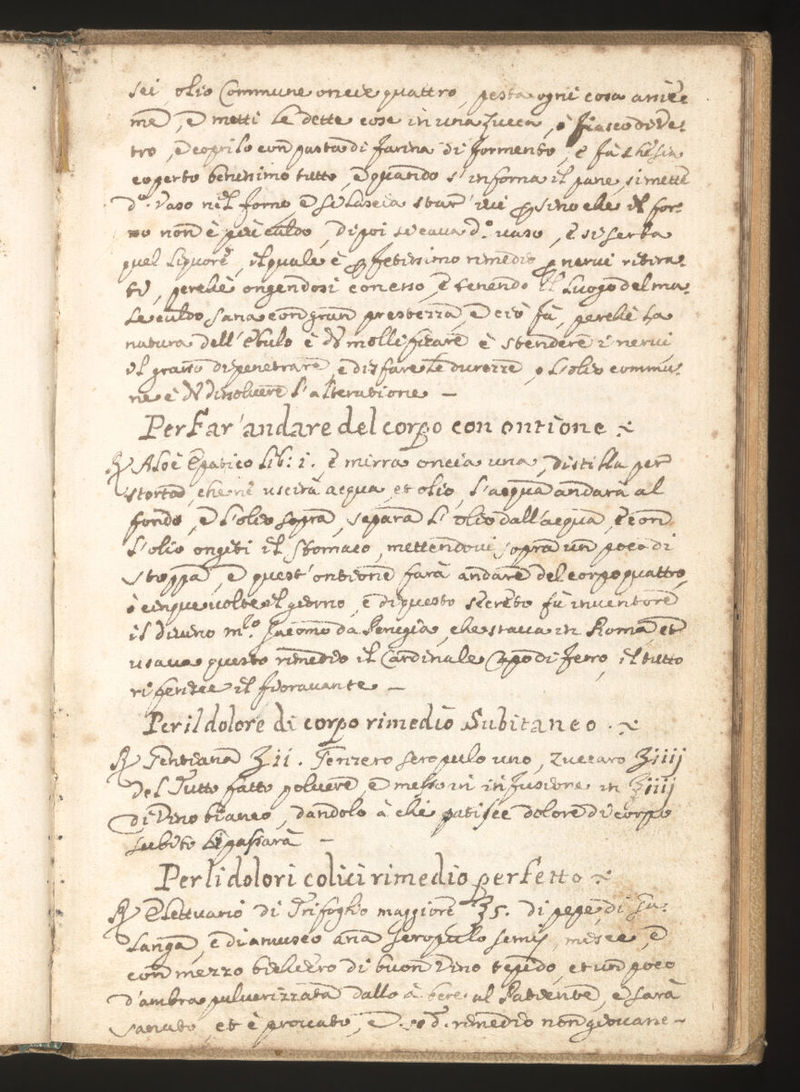 sei, olio Commune oncie quattro, pesta ogni cosa assie¯e
me¯, e metti le dette cose in una zucca, ò fiasco di Ve:
tro, e coprilo con pasta di farina di formento, e fà che sia
coperto benissimo tutto, e quando s'inforna il pane, si mette
d.º vaso nel forno, e si lascia star' ivi p sino che il for:
no non è più caldo, di poi si cava d.º vaso, e si serba
quel liquore, il quale è pfetissimo rimedio p nervi ritira:
ti, perche ongendosi con esso, e tenendo il luogo del ma:
le caldo sana con gran prestezza, e ciò fà, perche la
natura dell'Ebulo è di mollificare è stendere i nervi
il grasso di penetrare, e disfare le durezze, e l'olio commu:
ne è di dissolvere l'alteratione —
Per Far' andare del corpo con ontione
℞ Aloè Epatico lib: i. e mirra oncia una, distilla per
storta, che ne uscirà acqua, et olio, l'acqua andarà al
fondo, e l'olio sopra, separa l'olio dall'acqua, e con
l'olio ongiti il stomaco, mettendovi sopra un poco di
stoppa, e quest'ontione farà andare del corpo quattro,
ò cinque volte il giorno, e di questo secreto fù inventore
il divino m.º Jacomo da Perugia, che stava in Roma, et
usava questo rimedio il Cardinale Capo di ferro, il tutto
riferisce il Fioravante —
Per il dolore di corpo rimedio Subitaneo
℞ Gentiana ʒ ii. Zenzero scropulo uno, Zuccaro ʒ iiij
del Tutto fatto polvere, e messo in infusione in ℥iiij
di Vino bianco, dandolo à chi patisce dolore di corpo
subito li passarà —
Per li dolori colici rimedio perfetto
℞ Elettuario di Trifoglio maggiore ʒ5. di pepe, di Ga:
langa, e diamusco ana scropulo semis, misce, e
con mezzo bichiero di buon Vino tepido, et un poco
d'ambra pulverizzata dallo à bere al Patiente, e sarà
sanato, et è provato, e rimedio non giovane —